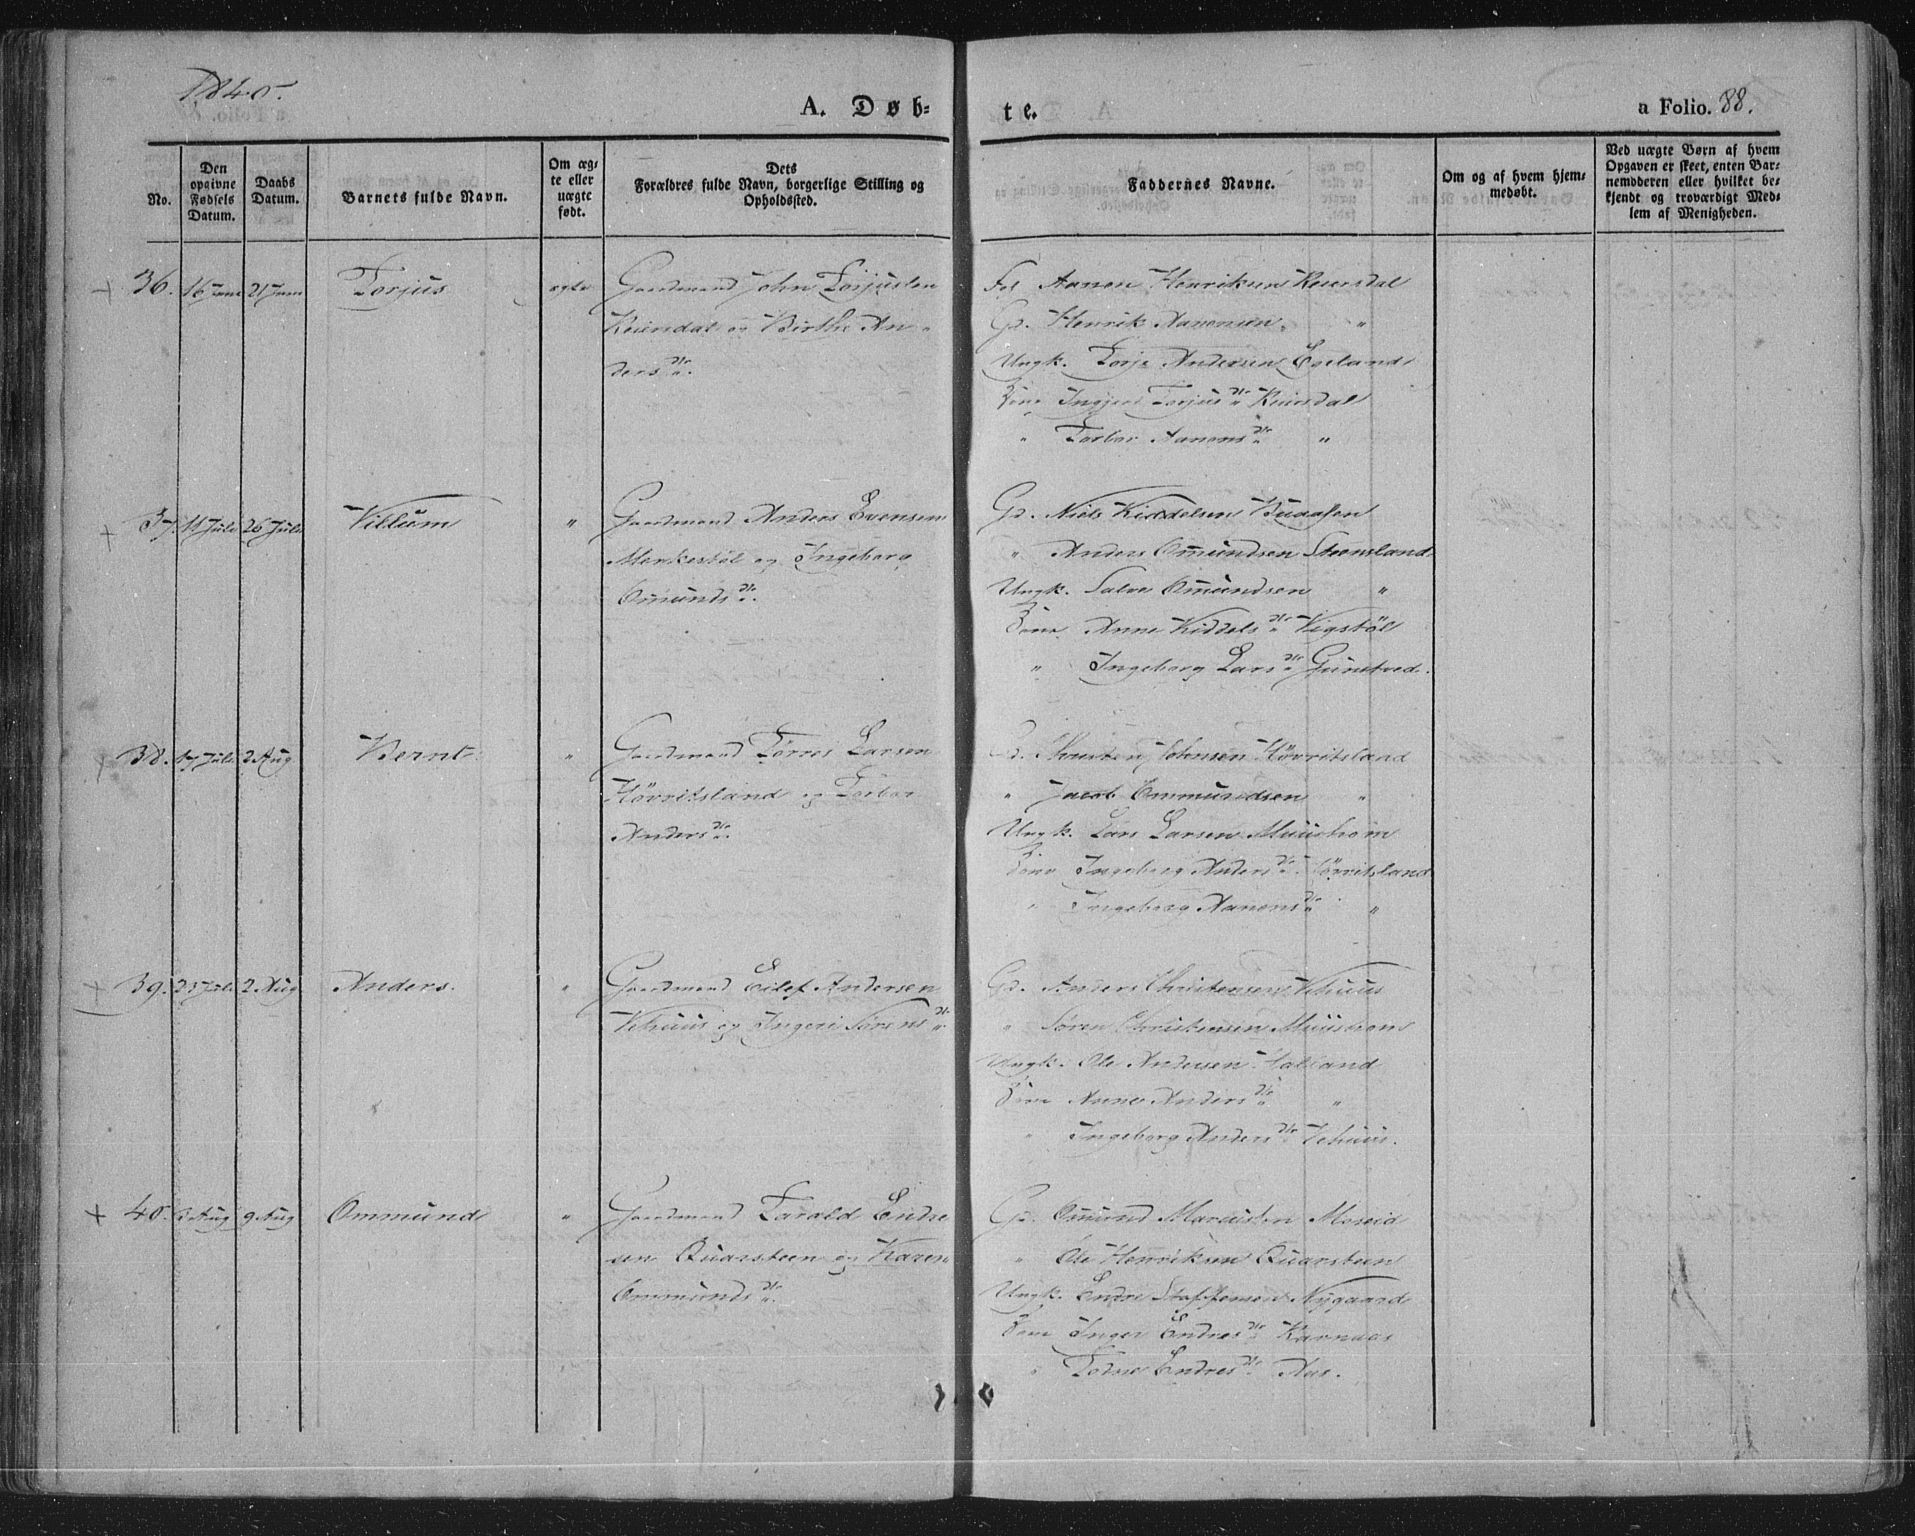 1840.
A. Døb-
te.
a Folio. 88.
No.
Den opgivne Fødsels Datum.
Daabs Datum.
Barnets fulde Navn.
Om ægte eller uægte født.
Dets Forældres fulde Navn, borgerlige Stilling og Opholdssted.
Faddernes Navne.
Om og af hvem hjemmedøbt.
Ved uægte Børn af hvem Opgaven er skeet, enten Barnemoderen eller hvilket bekjendt og troværdigt Medlem af Menigheden.
+ 36. 16 Juni 21 Juni Torjus ægte Gaardmand John Torjussen
Reiersdal og Birthe An-
ders dtr.
Aanon Henriksen Reiersdal
Gd. Henrik Aanonsen "
Ungk. Torje Andersen Egeland
Ingjer Torjus dtr Reiersdal
" Torbor Aanons dtr "
+ 37. Juli 26 Juli Villum " Gaardmand Anders Evensen
Monkestøl og Ingeborg
Omunds dtr.
Gd. Niels Kiddelsen Buaasen
" Anders Omundsen Steensland
Ungk. Salve Omundsen "
Anne Kiddels dtr Vigstøl
" Ingeborg Lars dtr Gunstved.
+ 38. 17 Juli 2 Aug Bernt " Gaardmand Tørres Larsen
Hövritsland og Torbor
Anders dtr.
Gd. Christen Johnsen Hövritsland
" Jacob Ommundsen "
Ungk. Lars Larsen Muushom
Ingeborg Anders dtr Hövritsland
" Ingeborg Aanons dtr "
+ 39. 23 Juli 2 Aug Anders. " Gaardmand Eilef Andersen
Vehuus og Ingeri Sørens dtr.
Gd. Anders Christensen Vehuus
" Søren Christensen Muushom
Ungk. Ole Andersen Halland
Anne Anders dtr "
" Ingeborg Anders dtr Vehuus.
+ 40. 3 Aug 9 Aug Ommund " Gaardmand Tarald Endre
sen Quarsteen og Karen
Ommunds dtr.
Gd. Omund Marcussen Moseid
" Ole Henriksen Quarsteen
Ungk. Endre Staffensen Nygaard
Inger Endres dtr Ravnaas
" Tone Endres dtr Aas.